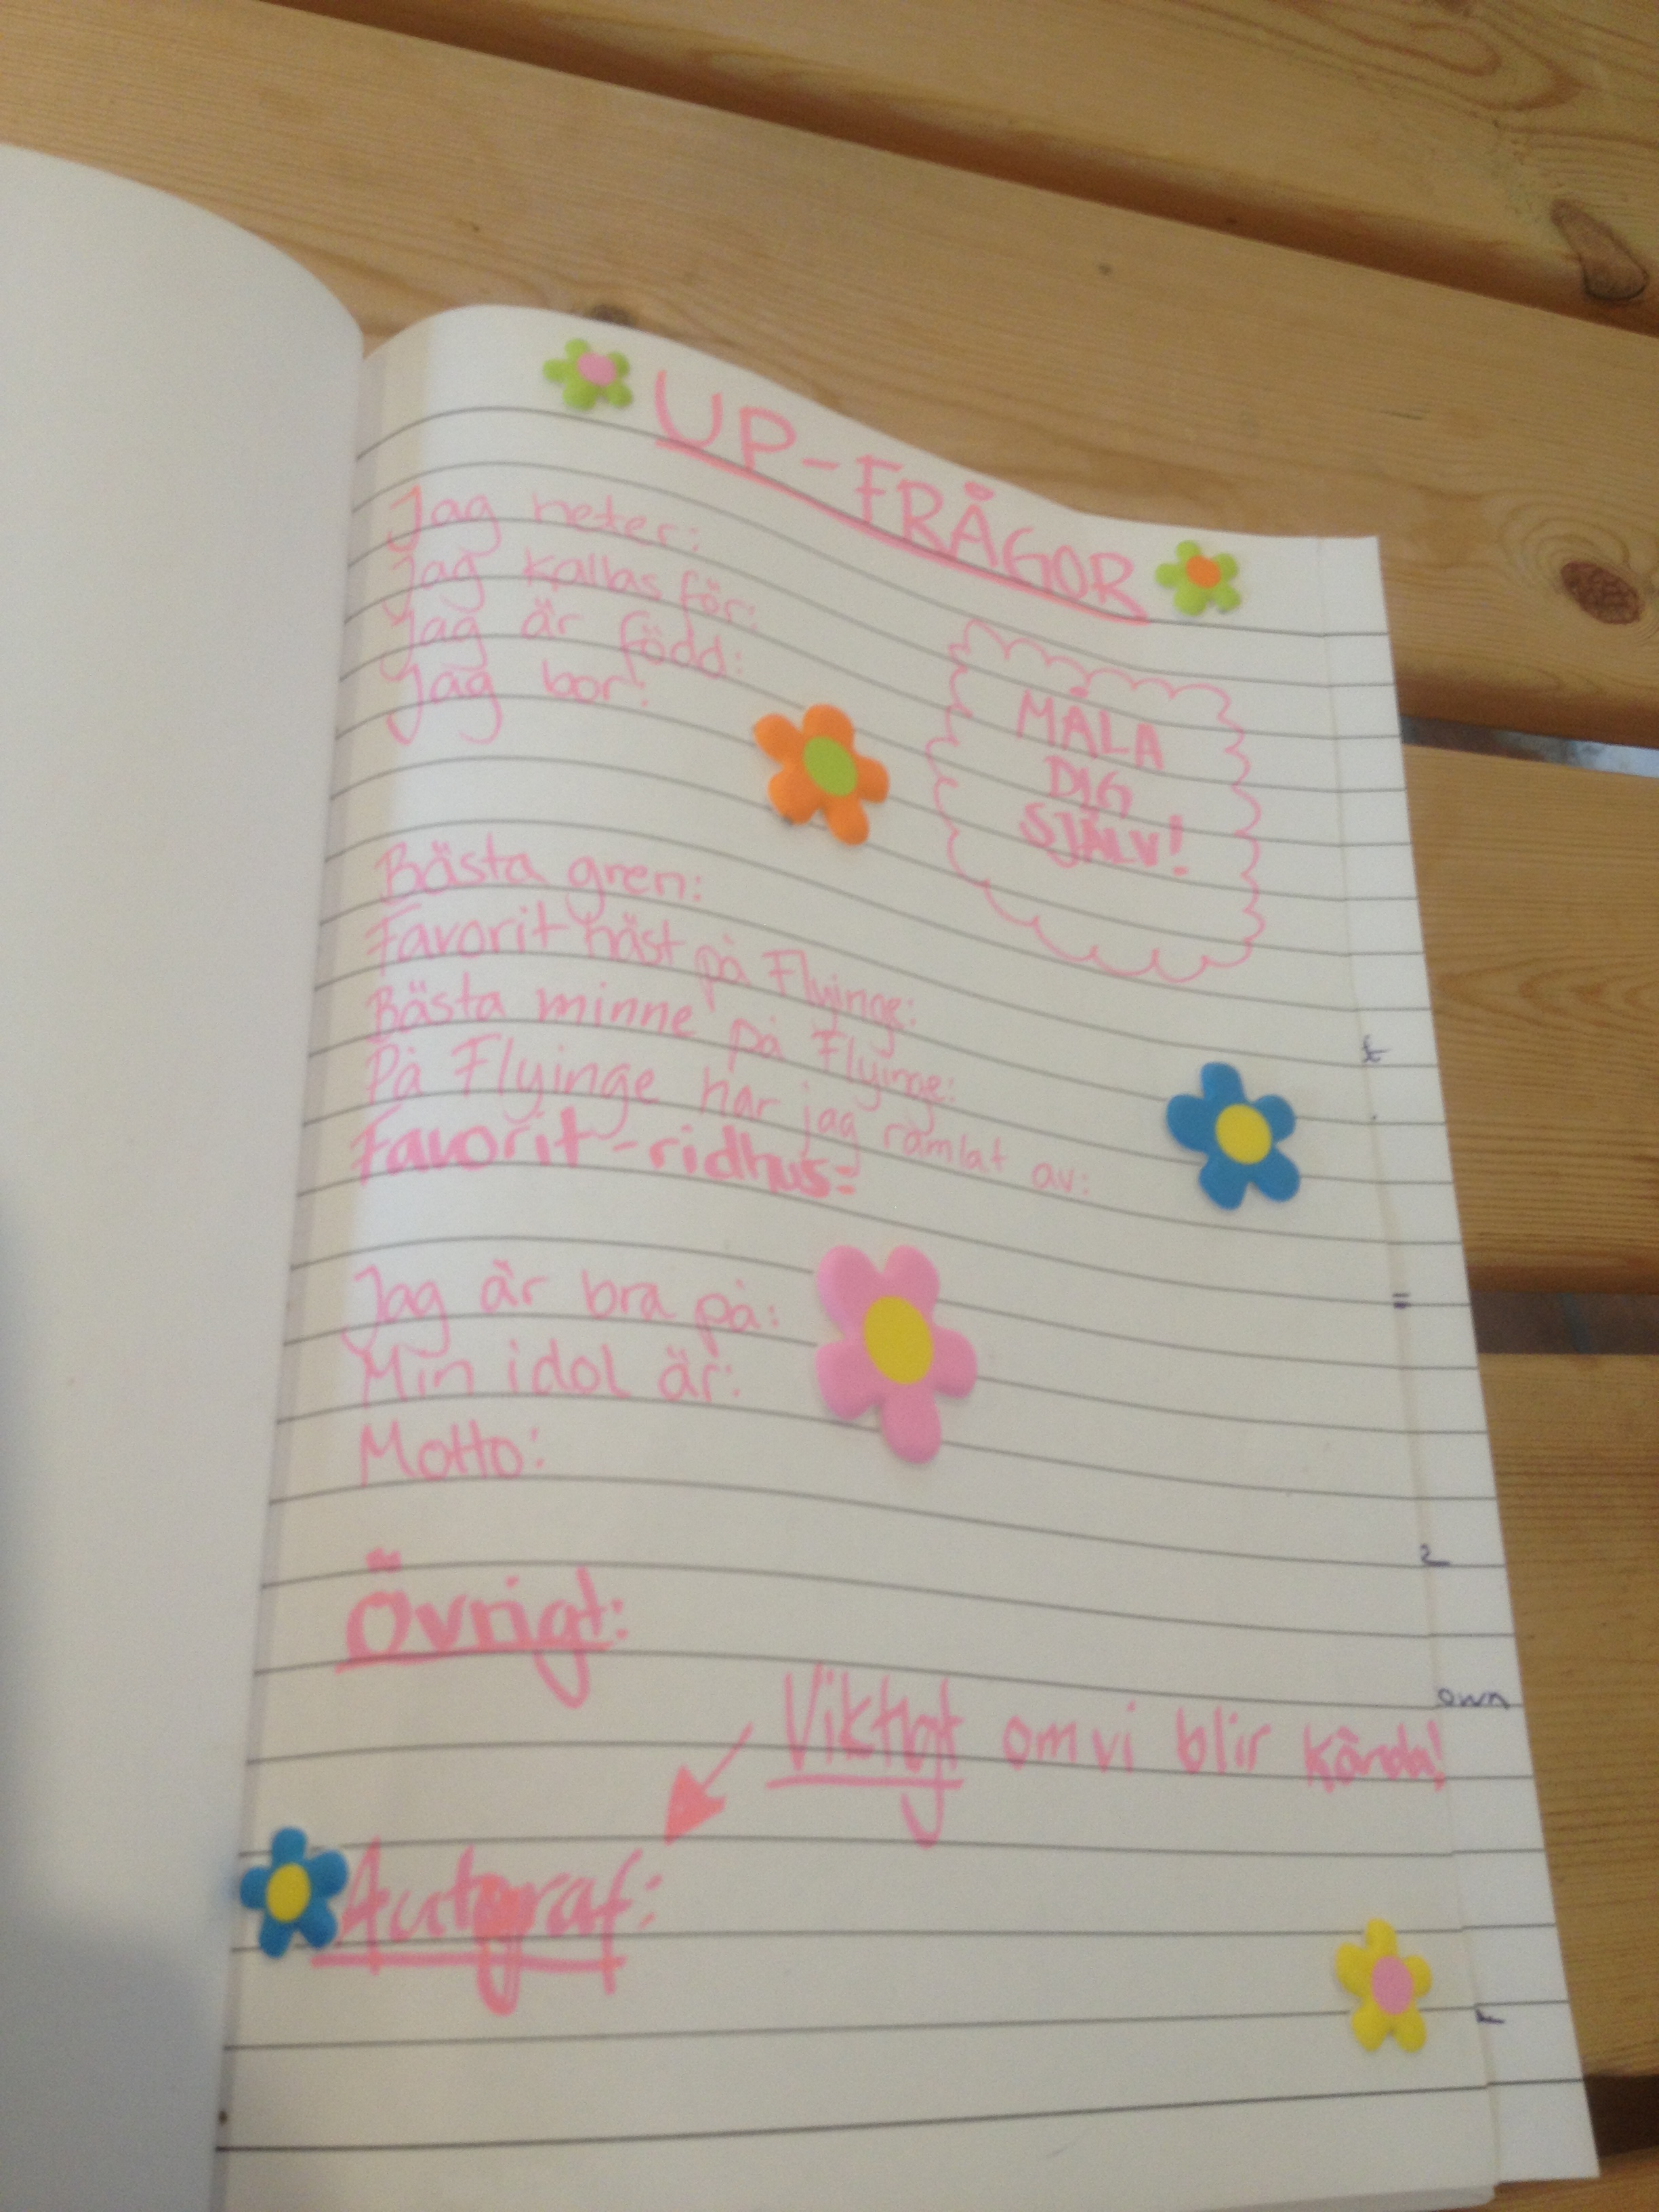 UP-FRÅGOR
Jag heter:
Jag kallas för:
Jag är född:
Jag bor:
MÅLA
DIG
SJÄLV!
Bästa gren:
Favorit häst på Flyinge:
Bästa minne på Flyinge:
På Flyinge har jag ramlat av:
Favorit-ridhus:
Jag är bra på:
Min idol är:
Motto:
Övrigt:
Viktigt om vi blir kända!
Autograf:
own